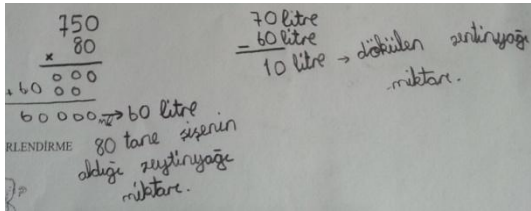 750
x 80
000
+ 60 00
60000 → 60 litre
80 tane şişenin
aldığı zeytinyağı
miktarı.
RLENDİRME
70 litre
- 60 litre
10 litre → dökülen zeytinyağı
miktarı.